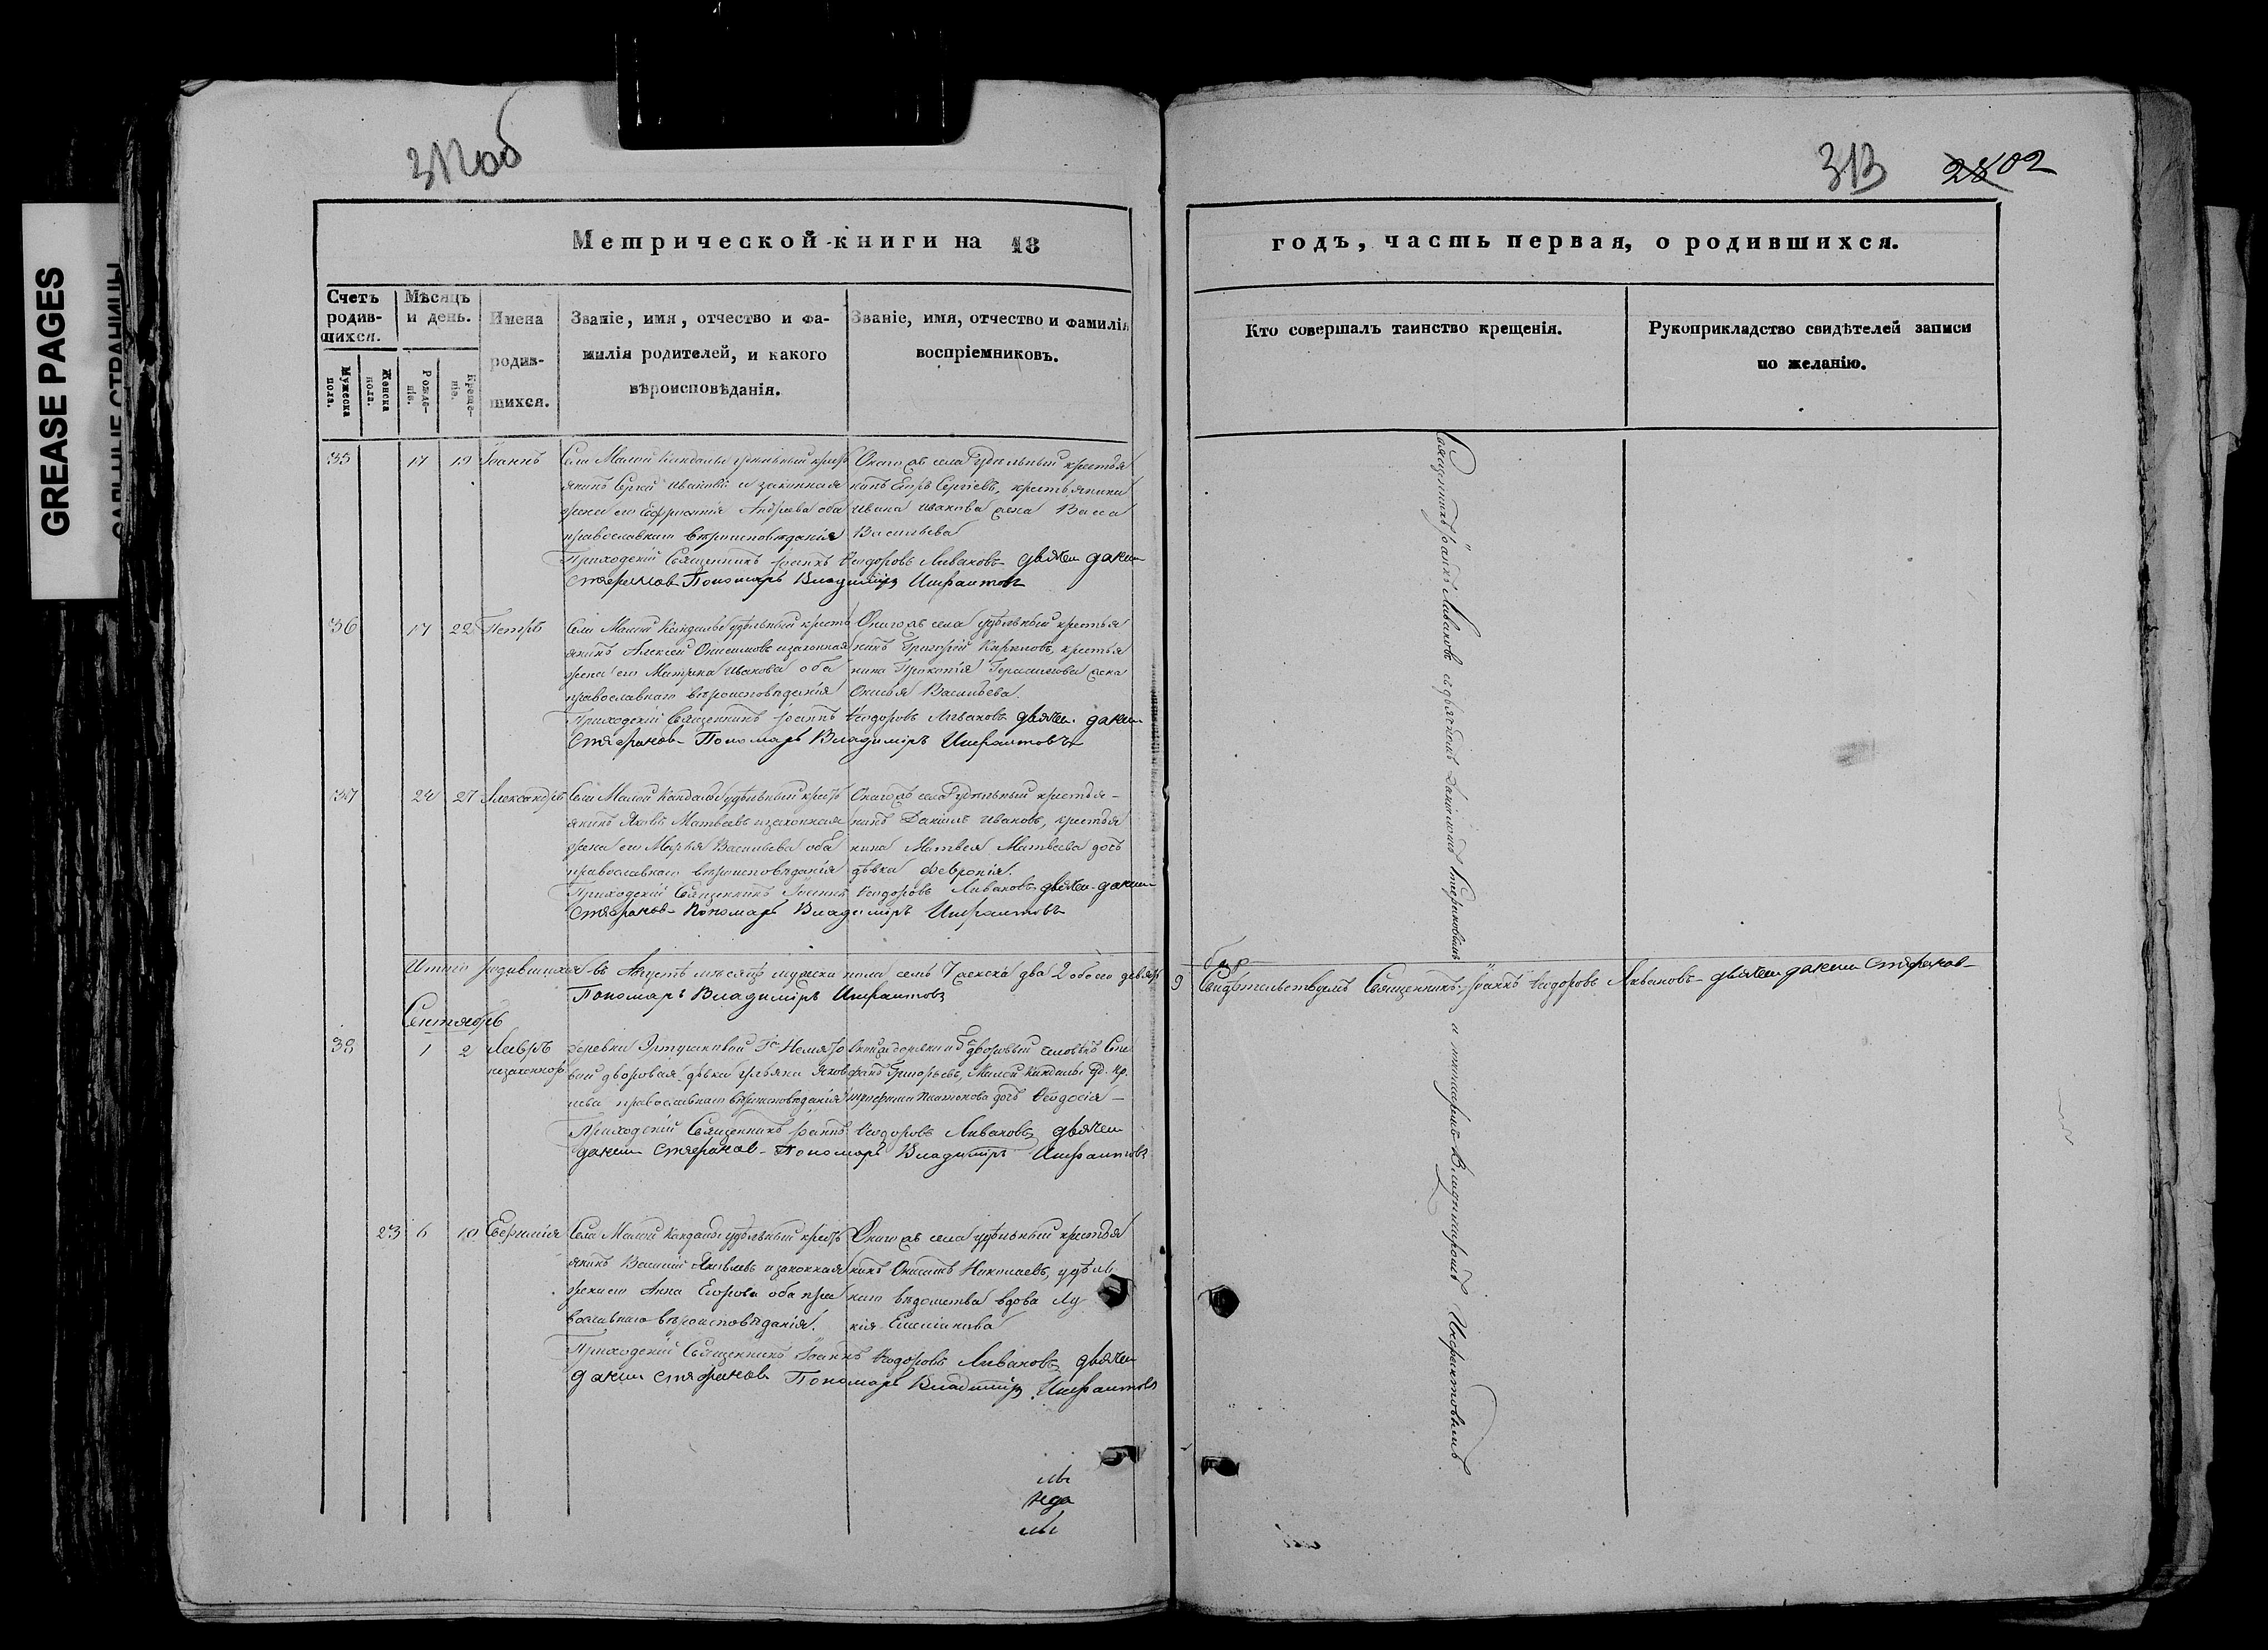 312об
313 2802
GREASE PAGES
САЛЬНЫЕ СТРАНИЦЫ
Метрической книги на 18
годъ, часть первая, о родившихся.
Счетъ родив-шихся.
Мужеска пола.
Женска пола.
Мѣсяцъ и день.
Рожде-нія.
Креще-нія.
Имена родив-шихся.
Званіе, имя, отчество и фа-
милія родителей, и какого
вѣроисповѣданія.
Званіе, имя, отчество и фамилія
воспріемниковъ.
Кто совершалъ таинство крещенія.
Рукоприкладство свидѣтелей записи
по желанію.
35 17 19 Іоаннъ
Села Малой Кандалы удѣльный кресть
янинъ Сергій Ивановъ и законная
жена его Андреева оба
православнаго вѣроисповѣданія
Онаго жъ села удѣльный крестья
нинъ Егоръ Сергіевъ, крестьянина
Ивана Иванова жена Васса
Васильева
Приходскій Священникъ Іоаннъ Ѳеодоровъ Ливановъ дьячекъ данила
Стефановъ Пономарь Владиміръ Инфантовъ
36 17 22 Петръ
Села Малой Кандалы удѣльный кресть
янинъ Алексей Онисимовъ и законная
жена его Матрена Иванова оба
православнаго вѣроисповѣданія
Онаго жъ села удѣльный крестья
нинъ Григорій Кириловъ, крестья
нина Прокопія Герасимова жена
Васильева.
Приходскій Священникъ Іоаннъ Ѳеодоровъ Ливановъ дьячекъ данила
Стефановъ Пономарь Владиміръ Инфантовъ
37 24 27 Александръ
Села Малой Кандалы удѣльный кресть
янинъ Яковъ Матвѣевъ и законная
жена его Марья Васильева оба
православнаго вѣроисповѣданія
Онаго жъ села удѣльный крестья-
нинъ Данилъ Ивановъ, крестья
нина Матвея Матвѣева дочь
дѣвка Февронія.
Приходскій Священникъ Іоаннъ Ѳеодоровъ Ливановъ дьячекъ данила
Стефановъ Пономарь Владиміръ Инфантовъ
Итого родившихся въ Августѣ мѣсяцѣ мужска пола семь 7 женска два 2 обоего девять
9 Свидѣтельствуемъ Священникъ Іоаннъ Ѳеодоровъ Ливановъ дьячекъ данила Стефановъ
Пономарь Владиміръ Инфантовъ
Сентябрь
38 1 2 Лавръ
незаконнор
деревни
вой дворовая дѣвка Ульяна Яков
лева православнаго вѣроисповѣданія
дворовый человѣкъ
Григорьевъ, Малой Кандалы уд. кр.
Платонова дочь Ѳеодосія
Приходскій Священникъ Іоаннъ Ѳеодоровъ Ливановъ дьячекъ
данила Стефановъ Пономарь Владиміръ Инфантовъ
23 6 10 Евфимія
Села Малой Кандалы удѣльный кресть
янинъ Василій Яковлевъ и законная
жена его Анна Егорова оба пра
вославнаго вѣроисповѣданія.
Онаго жъ села удѣльный крестья
нинъ Николаевъ, удѣль
наго вѣдомства вдова Лу
кія Емельянова
Приходскій Священникъ Іоаннъ Ѳеодоровъ Ливановъ дьячекъ
данила Стефановъ Пономарь Владиміръ Инфантовъ
Священникъ Іоаннъ Ливановъ съ дьячкомъ Даніиломъ Стефановымъ и пономаремъ Владиміромъ Инфантовымъ